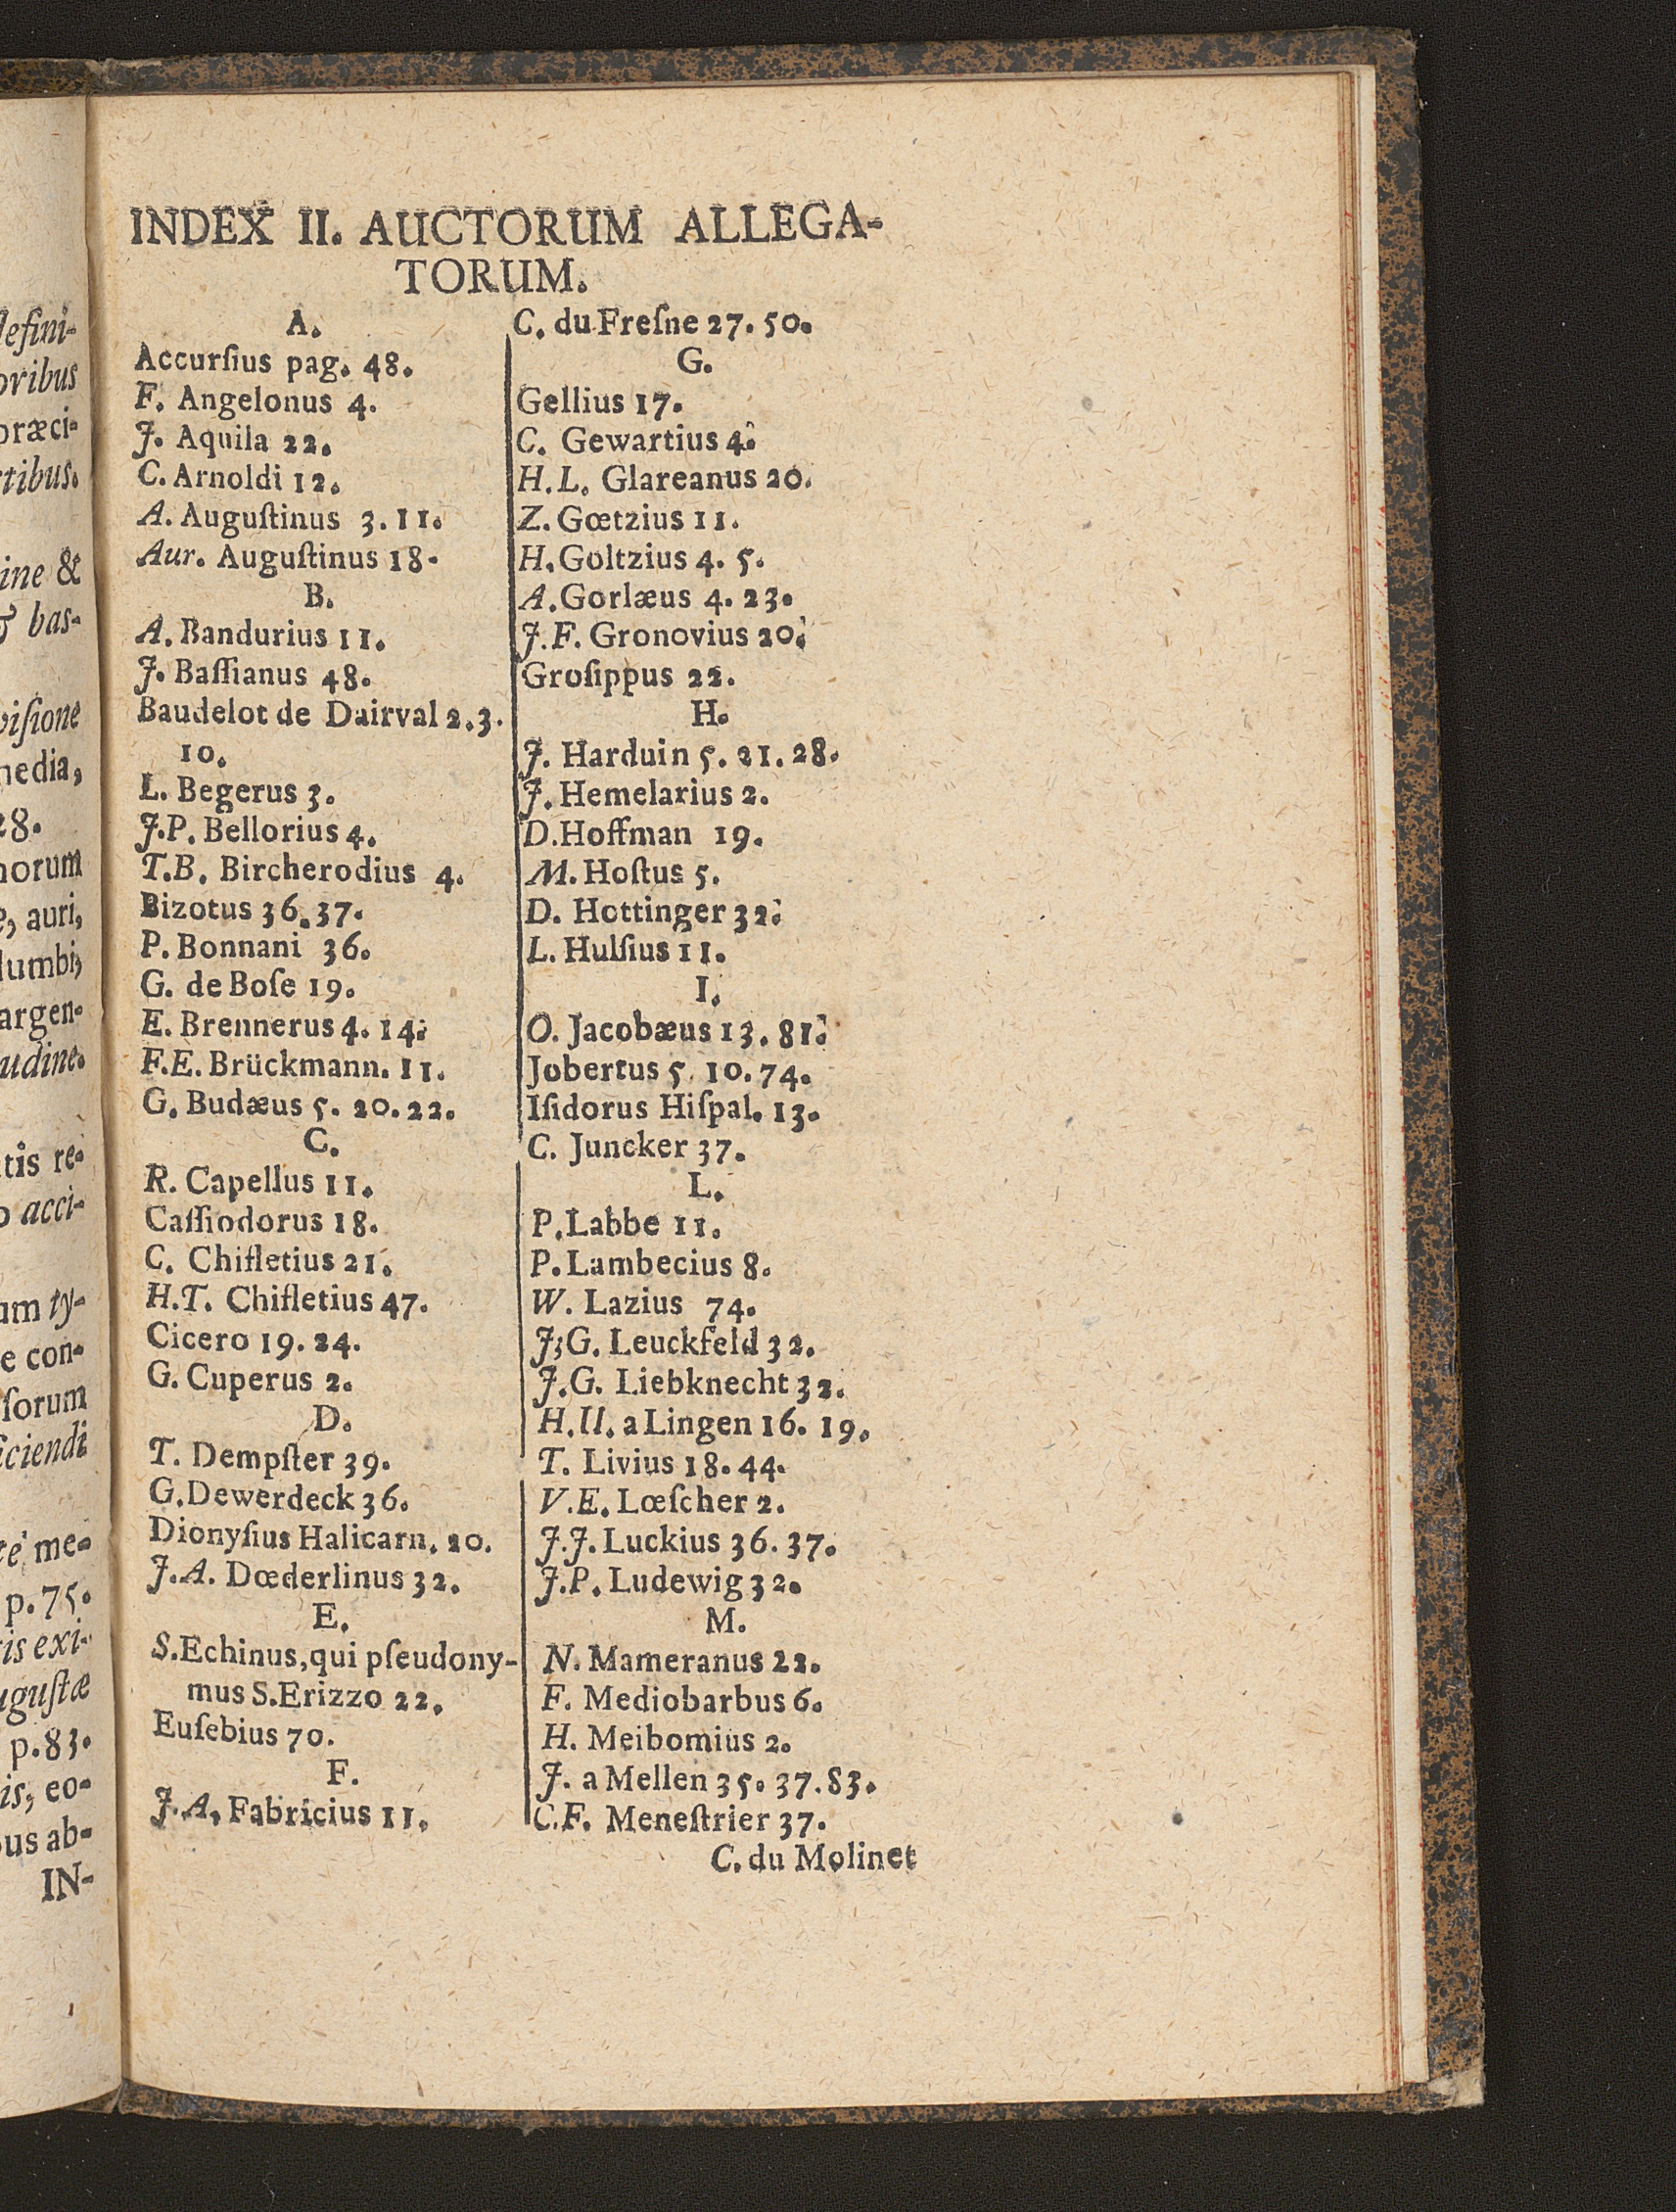 INDEX II. AUCTORUM ALLEGA-
TORUM.
A.
Accurſius pag. 48.
F. Angelonus 4.
J. Aquila 22.
C. Arnoldi 12.
A. Auguſtinus 3. 11.
Aur. Auguſtinus 18.
B.
A. Bandurius 11.
J. Baſſianus 48.
Baudelot de Dairval 2. 3.
10.
L. Begerus 3.
J.P. Bellorius 4.
T.B. Bircherodius 4.
Bizotus 36. 37.
P. Bonnani 36.
G. de Boſe 19.
E. Brennerus 4. 14.
F.E. Brückmann. 11.
G. Budæus 5. 20. 22.
C.
R. Capellus 11.
Caſſiodorus 18.
C. Chifletius 21.
H.T. Chifletius 47.
Cicero 19. 24.
G. Cuperus 2.
D.
T. Dempſter 39.
G. Dewerdeck 36.
Dionyſius Halicarn. 20.
J.A. Dœderlinus 32.
E.
S. Echinus, qui pſeudony-
mus S. Erizzo 22.
Euſebius 70.
F.
J.A. Fabricius 11.
C. du Freſne 27. 50.
G.
Gellius 17.
C. Gewartius 4.
H.L. Glareanus 20.
Z. Gœtzius 11.
H. Goltzius 4. 5.
A. Gorlæus 4. 23.
J.F. Gronovius 20.
Groſippus 22.
H.
J. Harduin 5. 21. 28.
J. Hemelarius 2.
D. Hoffman 19.
M. Hoſtus 5.
D. Hottinger 32.
L. Hulſius 11.
I.
O. Jacobæus 13. 81.
Jobertus 5. 10. 74.
Iſidorus Hiſpal. 13.
C. Juncker 37.
L.
P. Labbe 11.
P. Lambecius 8.
W. Lazius 74.
J;G. Leuckfeld 32.
J.G. Liebknecht 32.
H.U. a Lingen 16. 19.
T. Livius 18. 44.
V.E. Lœſcher 2.
J.J. Luckius 36. 37.
J.P. Ludewig 32.
M.
N. Mameranus 22.
F. Mediobarbus 6.
H. Meibomius 2.
J. a Mellen 35. 37. 83.
C.F. Meneſtrier 37.
C. du Molinet